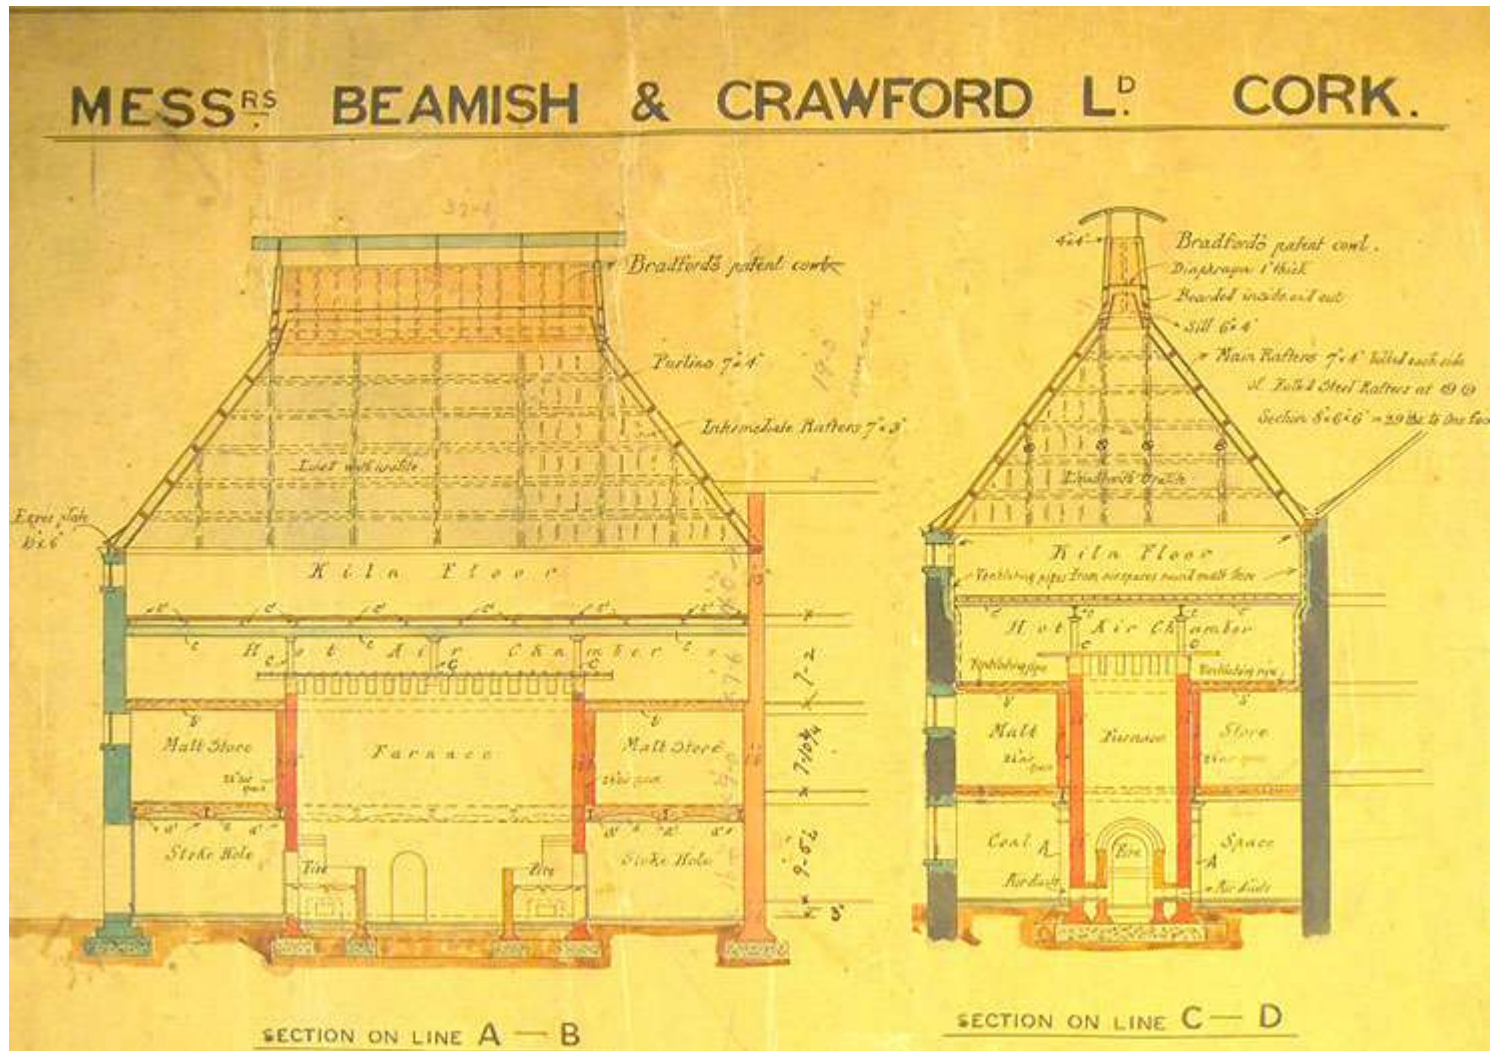 MESSRS BEAMISH & CRAWFORD LD. CORK.
Bradford's patent cowl
Purlins 7" x 4"
Intermediate Rafters 7" x 3"
Eaves plate
Kiln Floor
Hot Air Chamber
Malt Store
Furnace
Malt Store
Stoke Hole
Fire
Fire
Stoke Hole
7-2
7-10 3/4
9-5 1/2
SECTION ON LINE A — B
4" x 4"
Bradford's patent cowl.
Diaphragm 1" thick
Boarded inside and out
Sill 6" x 4"
Main Rafters 7" x 4" bolted each side
of Rolled Steel Rafters at
Kiln Floor
Ventilating pipes from air spaces round malt store
Hot Air Chamber
Ventilating pipe
Ventilating pipe
Malt
Furnace
Store
Coal
A
Fire
A
Space
Air ducts
Air ducts
SECTION ON LINE C — D